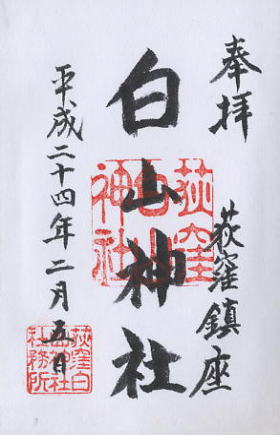 奉拝
荻窪鎮座
白山神社
平成二十四年二月五日
荻窪
白山
神社
荻窪白
山神社
社務所